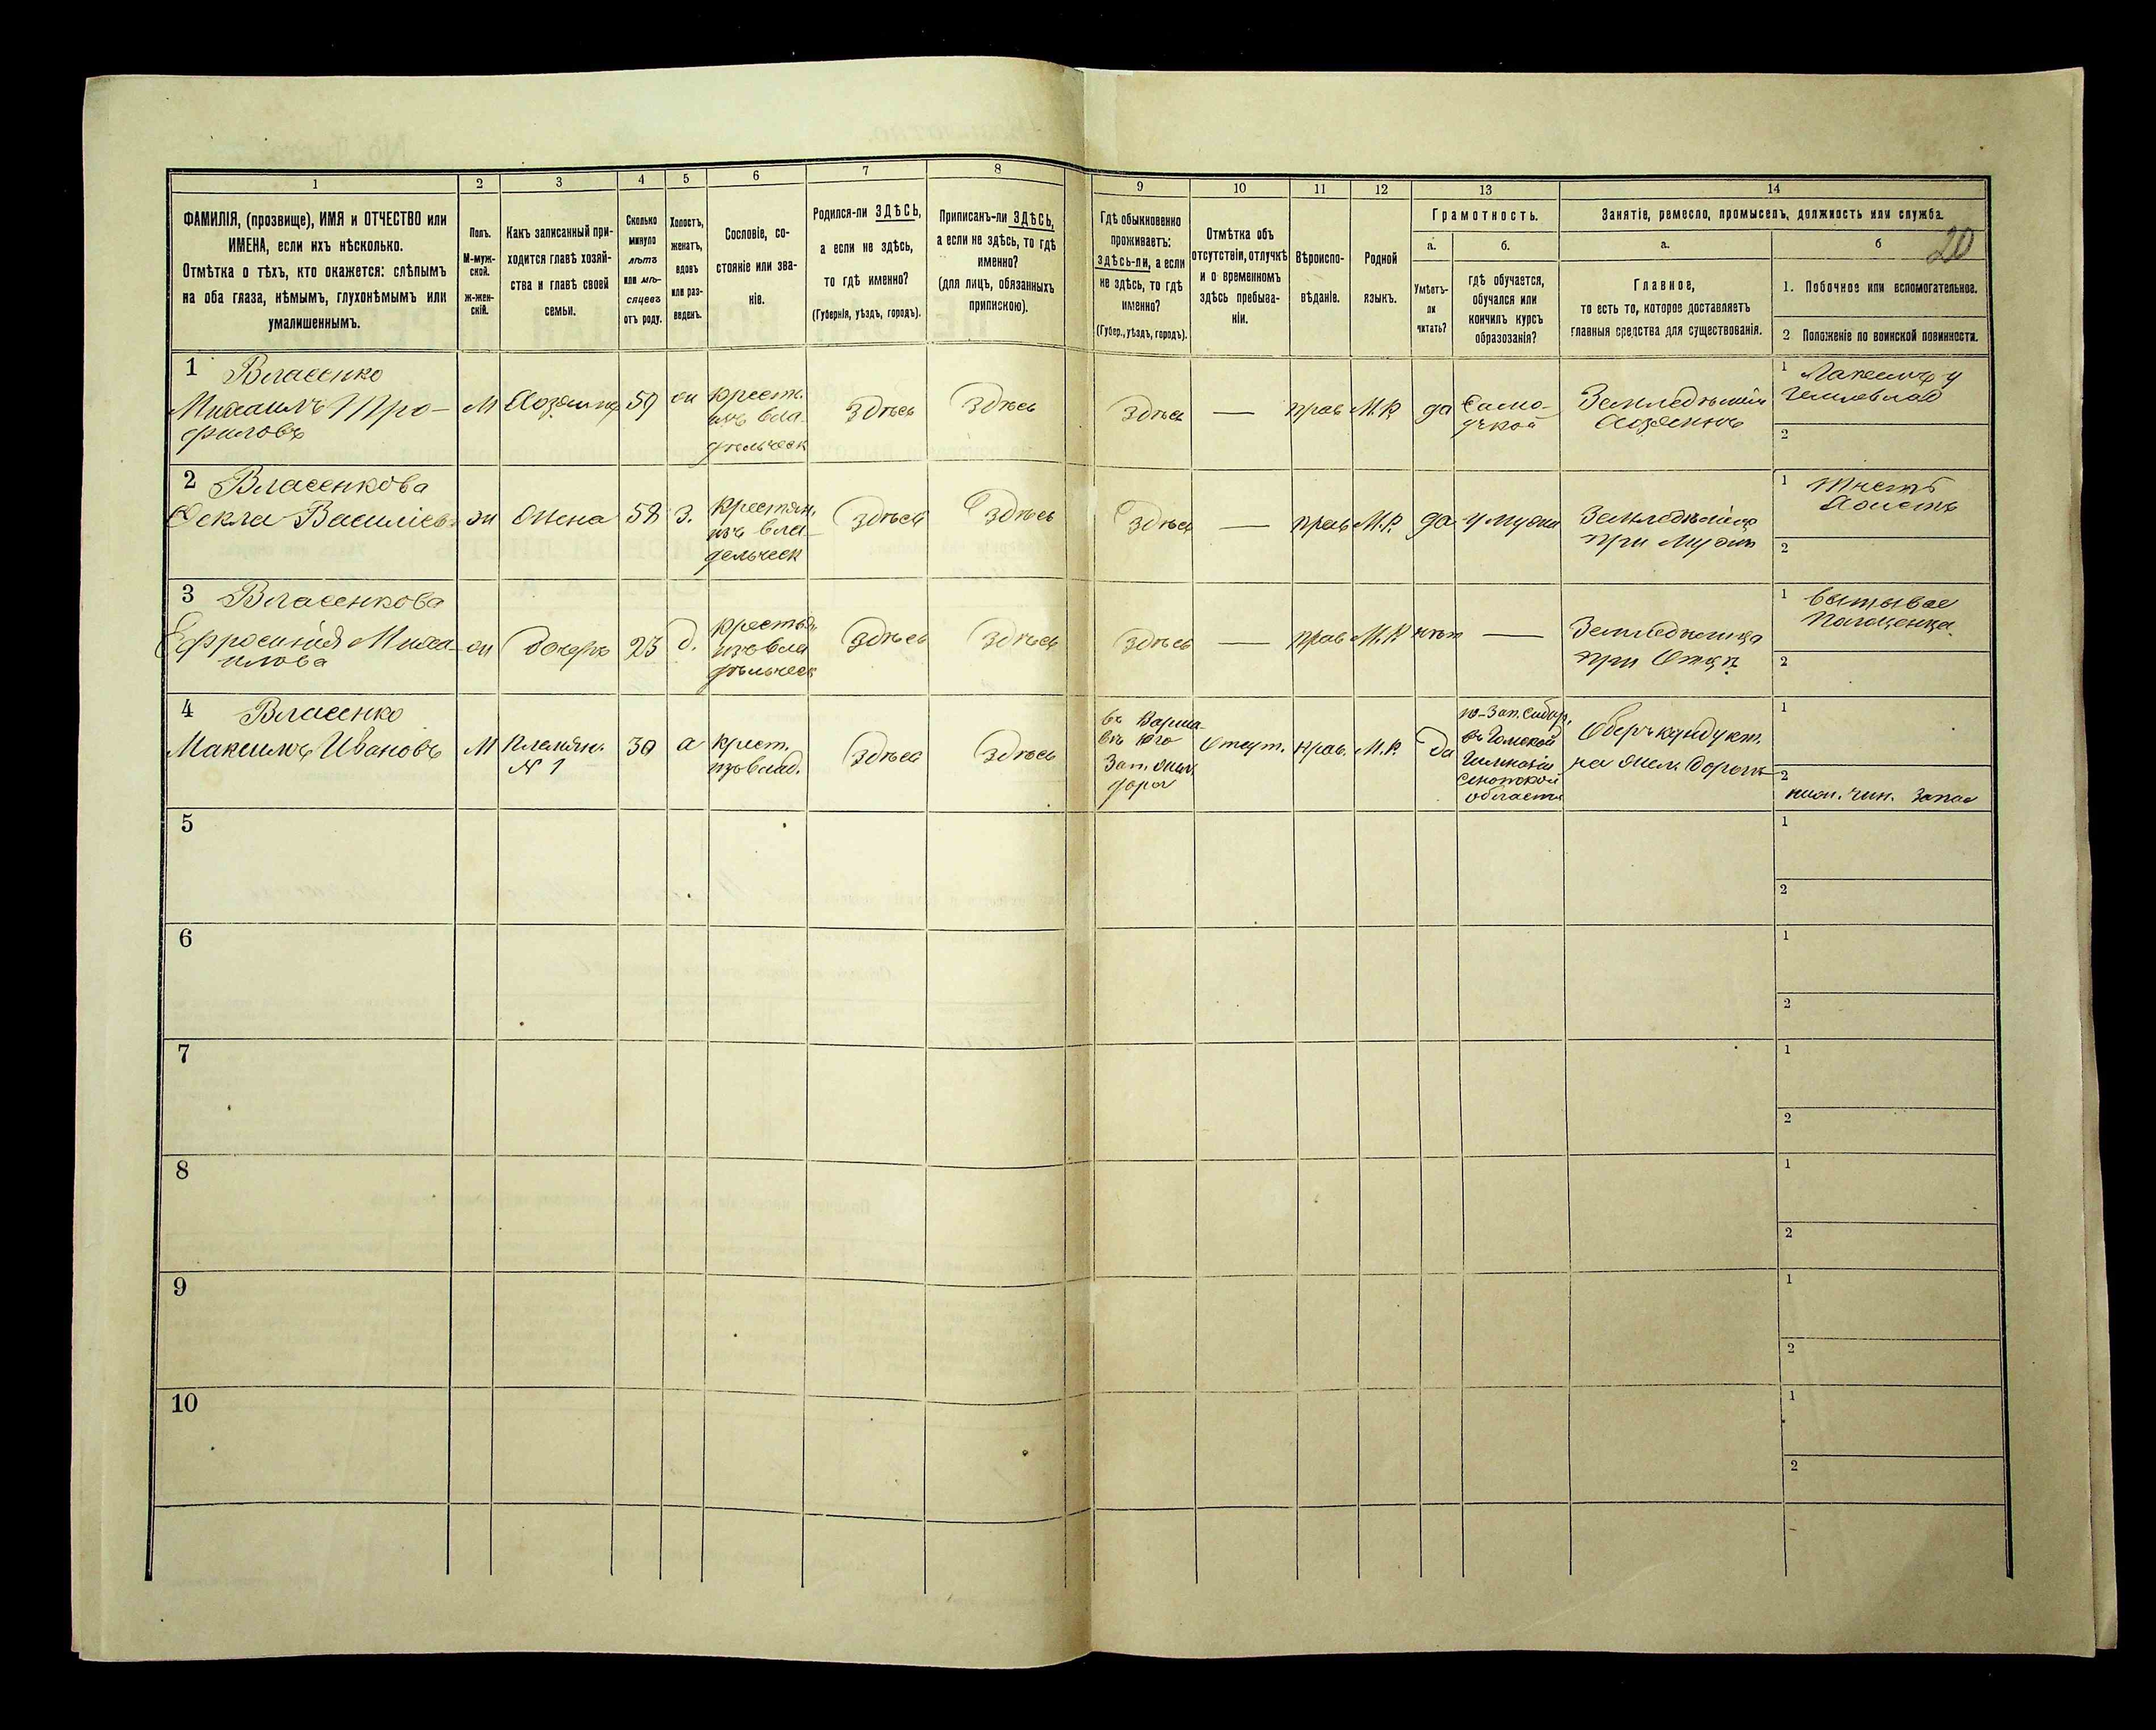 20
1 2 3 4 5 6 7 8 9 10 11 12 13 14
ФАМИЛІЯ, (прозвище), ИМЯ и ОТЧЕСТВО или
ИМЕНА, если ихъ нѣсколько.
Отмѣтка о тѣхъ, кто окажется: слѣпымъ
на оба глаза, нѣмымъ, глухонѣмымъ или
умалишеннымъ.
Полъ.
М-муж-
ской.
Ж-жен-
скій.
Какъ записанный при-
ходится главѣ хозяй-
ства и главѣ своей
семьи.
Сколько
минуло
лѣтъ
или мѣ-
сяцевъ
отъ роду.
Холостъ,
женатъ,
вдовъ
или раз-
веденъ.
Сословіе, со-
стояніе или зва-
ніе.
Родился-ли ЗДѢСЬ,
а если не здѣсь,
то гдѣ именно?
(Губернія, уѣздъ, городъ).
Приписанъ-ли ЗДѢСЬ,
а если не здѣсь, то гдѣ
именно?
(для лицъ, обязанныхъ
припискою).
Гдѣ обыкновенно
проживаетъ:
здѣсь-ли, а если
не здѣсь, то гдѣ
именно?
(Губер., уѣздъ, городъ).
Отмѣтка объ
отсутствіи, отлучкѣ
и о временномъ
здѣсь пребыва-
ніи.
Вѣроиспо-
вѣданіе.
Родной
языкъ.
Грамотность.
а.
Умѣетъ-
ли
читать?
б.
гдѣ обучается,
обучался или
кончилъ курсъ
образозанія?
Занятіе, ремесло, промыселъ, должность или служба.
а.
Главное,
то есть то, которое доставляетъ
главныя средства для существованія.
б
1. Побочное или вспомогательное.
2 Положеніе по воинской повинности.
1 Власенко
Михаилъ Тро-
фимовъ
М
Хозяинъ
59
ж
Крест.
изъ вла-
дѣльческ
Здѣсь
Здѣсь
Здѣсь
—
прав
М.Р.
да
Само-
учкой
Земледѣлія
Хозяинъ
1
2
2 Власенкова
Фекла Василіев
ж
Жена
58
З.
Крестян.
изъ вла-
дельческ
Здѣсь
Здѣсь
Здѣсь
—
прав
М.Р.
да
у мужа
при мужѣ
1
2
3 Власенкова
Ефросинія Миха-
илова
ж
дочерь
23
д.
Крестья
изъ вла
дѣльческ
Здѣсь
Здѣсь
Здѣсь
—
прав
М.Р
нѣт
—
при Отцѣ
1
2
4 Власенко
Максимъ Ивановъ
М
Племян.
N 1
30
крест.
изъ влад.
Здѣсь
Здѣсь
Зап. жел.
дорог
Отсут.
прав.
М.Р.
да
въ Томской
Гимназіи
области
Оберъ кондукт.
на жел. Дорогѣ
1
2
нижн. чин. Запас
5
1
2
6
1
2
7
1
2
8
1
2
9
1
2
10
1
2